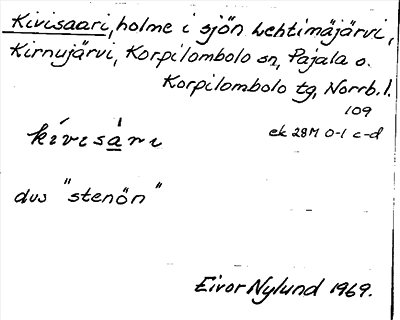 Kivisaari, holme i sjön Lehtimäjärvi,
Kirnujärvi, Korpilombolo sn, Pajala o.
Korpilombolo tg, Norrb. l.
109
ek 28M 0-1 c-d
kívisàri
dvs "stenön"
Eivor Nylund 1969.